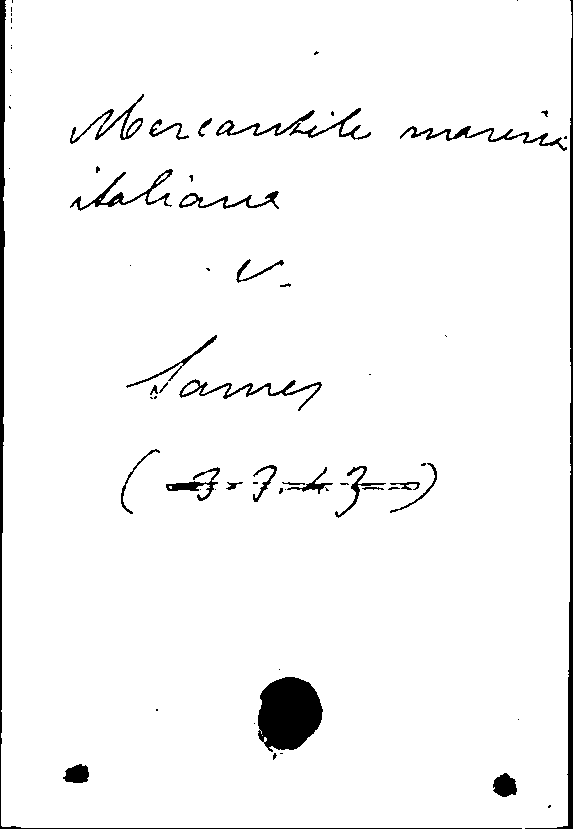 Mercantile marina
italiana
v.
Sames
( 3. 7. 43 )